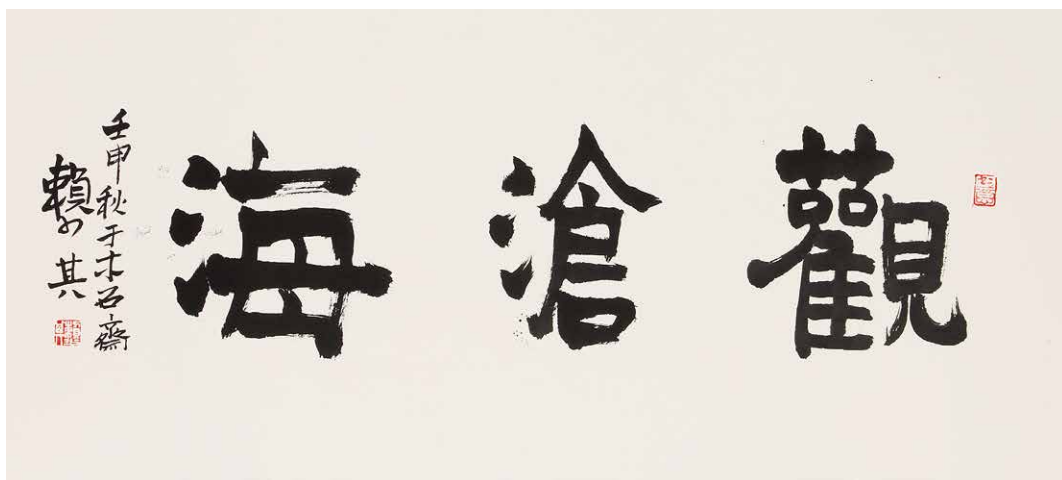 觀滄海
壬申秋于木石齋
賴少其